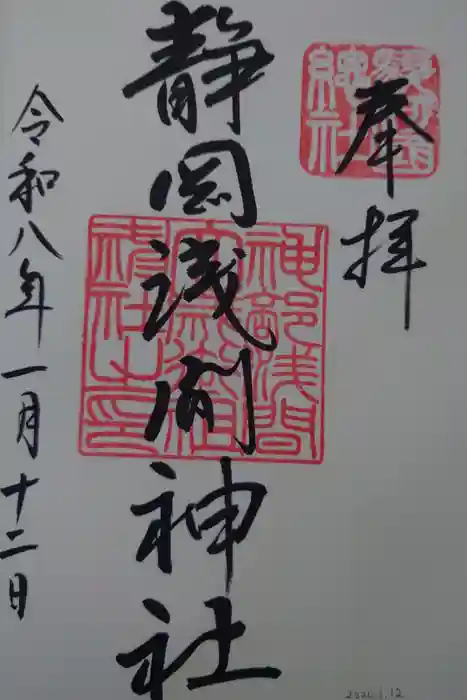 奉拝
静岡浅間神社
令和八年一月十二日
神部浅間
2026.1.12